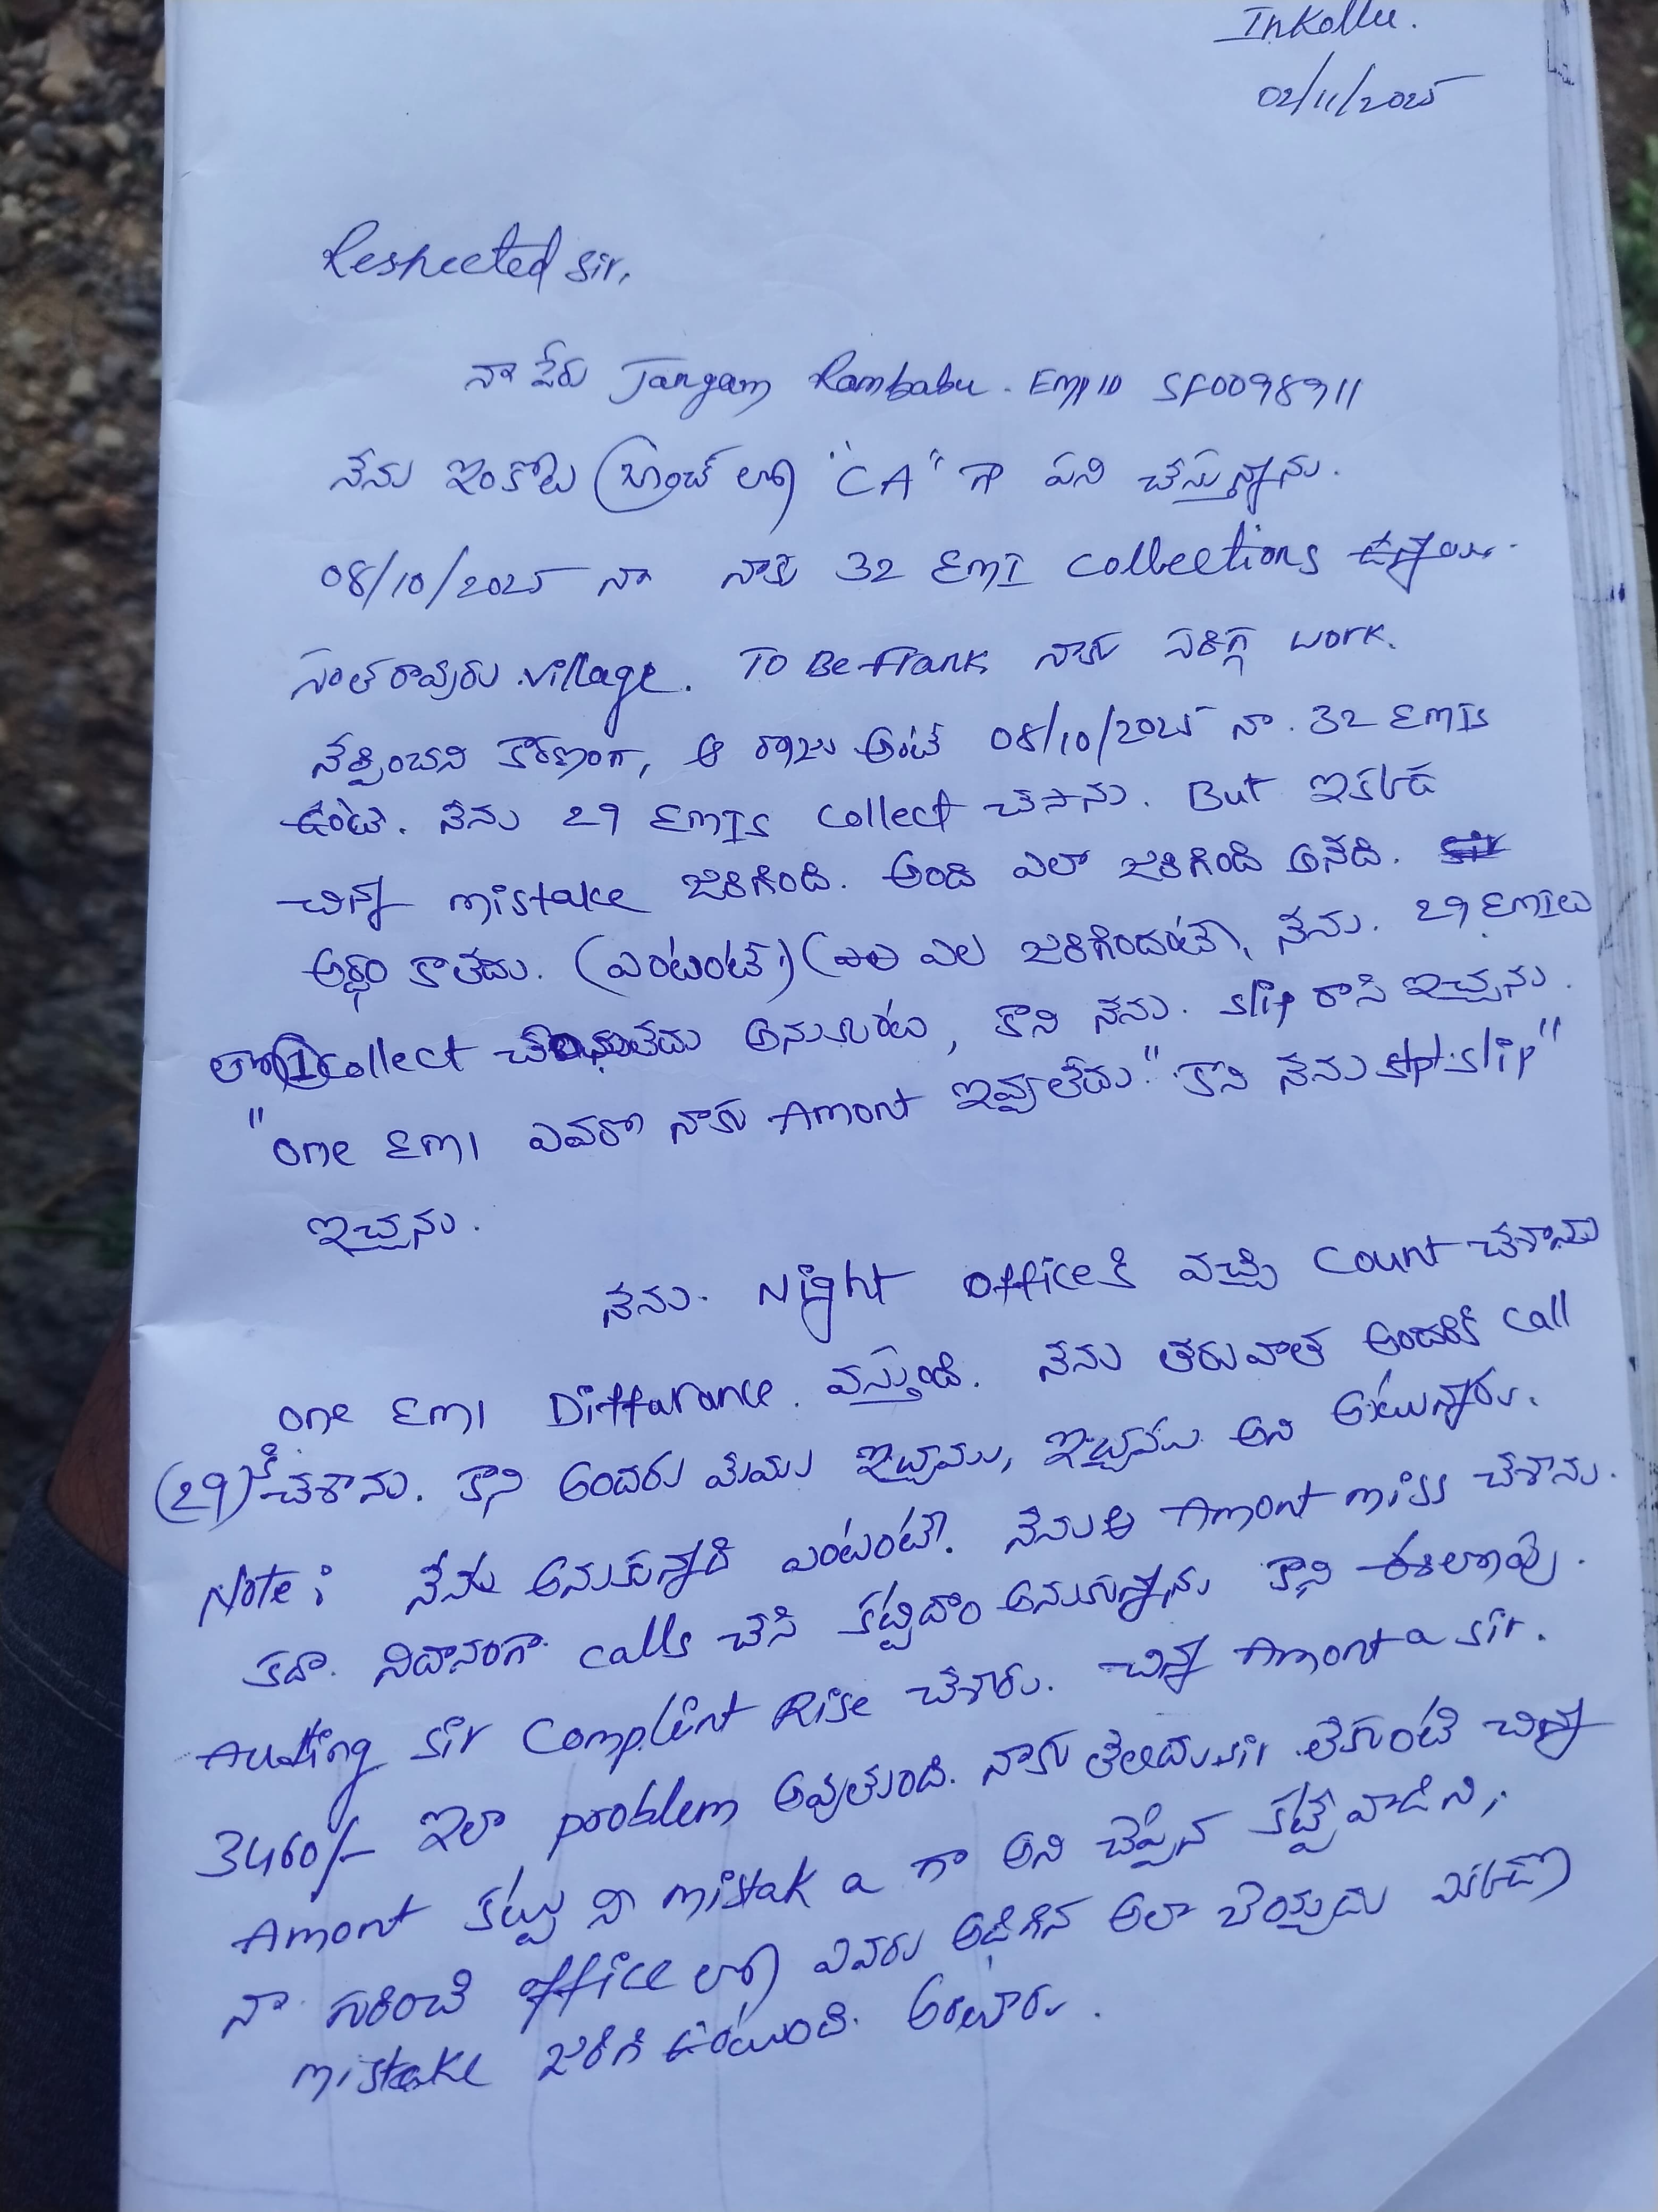 Inkollu.
02/11/2025
Respected sir,
నా పేరు Jangam Rambabu. Emp ID SF0098911
నేను ఇంకోలు బ్రాంచ్ లో "CA" గా పని చేస్తున్నాను.
08/10/2025 నా నాకు 32 EMI Collections ఉన్నాయి.
సంతరావురు village. To Be Frank నాకు సరిగ్గ work.
నేర్పించని కారణంగ, ఆ రోజు అంటే 08/10/2025 నా. 32 EMIs
ఉంటే. నేను 29 EMIs Collect చేసాను. But ఇక్కడ
చిన్న mistake జరిగింది. అంది ఎలా జరిగింది అనేది.
అర్థం కాలేదు. (ఎంటంటే) ఎల జరిగిందంటే, నేను. 29 EMIలు
లో I collect చేయలేదు అనుకుంట, కాని నేను. slip రాసి ఇచ్చను.
"One EMI ఎవరో నాకు Amont ఇవ్వలేదు." కాని నేను slip"
ఇచ్చను.
నేను. Night officeకి వచ్చి Count చేశాను
One EMI Diffarance. వస్తుంది. నేను తరువాత అందరికి Call
(29)కి చేశాను. కాని అందరు మేము ఇచ్చాము, ఇచ్చానము అని అంటున్నారు.
Note: నేను అనుకున్నది ఎంటంటే. నేను Amont miss చేశాను.
కదా. నిదానంగా calls చేసి కట్టిద్దాం అనుకున్నాను కాని ఈలోపు.
Auditing sir Complint Rise చేశారు. చిన్న Amont a sir.
3460/- ఇలా problem అవుతుంది. నాకు తెలిదు sir లేకుంటే చిన్న
Amont కట్టు ని mistak a గా అని చెప్పిన కట్టేవాడిని,
నా గురించి office లో ఎవరు అడిగిన అలా చెయ్యడు ఎక్కడో
mistake జరిగి ఉంటుంది. అంటారు.